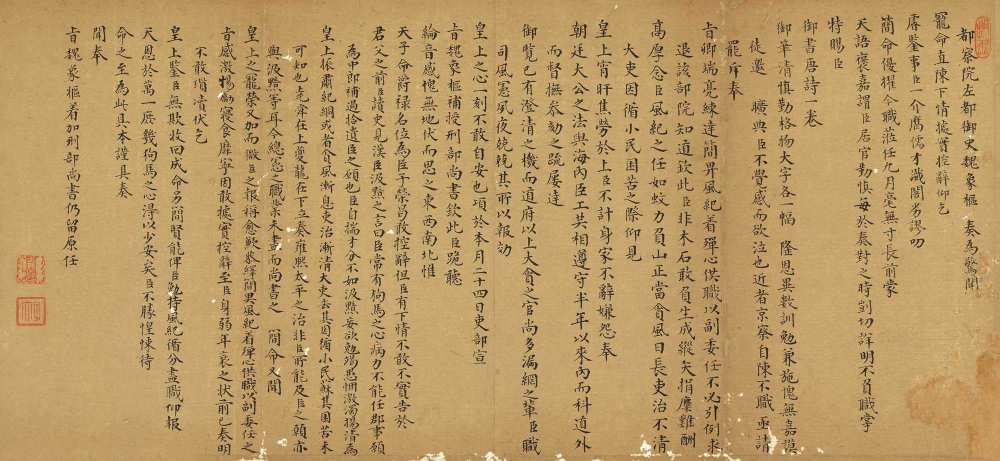 都察院左都御史魏象樞 奏為驚聞
寵命直陳下情據實控辭仰乞
睿鑒事臣一介庸儒才識闇劣謬叨
簡命優擢今職蒞任九月毫無寸長前蒙
天語褒嘉謂臣居官勤慎每於奏對之時剴切詳明不負職掌
特賜臣
御書唐詩一卷
御筆清慎勤格物大字各一幅 隆恩異數訓勉兼施愧無嘉謨
徒邀 曠典臣不覺感而欲泣也近者京察自陳不職亟請
罷斥奉
旨卿端亮練達簡畀風紀着殫心供職以副委任不必引例求
退該部院知道欽此臣非木石敢負生成縱矢捐糜難酬
高厚念臣風紀之任如蚊力負山正當貪風日長吏治不清
大吏因循小民困苦之際仰見
皇上宵旰焦勞於上臣不計身家不辭嫌怨奉
朝廷大公之法與海內臣工共相遵守半年以來內而科道外
而督撫參劾之疏屢達
御覽已有澄清之機而道府以上大貪之官尚多漏網之輩臣職
司風憲夙夜兢兢其所以報効
皇上之心一刻不敢自安也項於本月二十四日吏部宣
旨魏象樞補授刑部尚書欽此臣跪聽
綸音感愧無地伏而思之東西南北惟
天子命爵祿名位為臣子榮苟敢控辭但臣有下情不敢不實告於
君父之前臣讀史見漢臣汲黯之言曰臣常有狗馬之心病力不能任郡事願
為中郎補過拾遺臣之願也臣自揣才分不如汲黯妄欲勉竭愚悃激濁揚清為
皇上振肅紀綱或者貪風漸息吏治漸清大吏去其因循小民蘇其困苦未
可知也堯舜在上夔龍在下立奏雍熙太平之治非臣所能及臣之願亦
與汲黯等耳今總憲之職業未盡而尚書之 簡命又聞
皇上之寵榮又加而微臣之報稱愈歉恭繹簡畀風紀着殫心供職以副委任之
旨感激惕勵寢食靡寧因敢據實控辭至臣身弱年衰之狀前已奏明
不敢瑣瀆伏乞
皇上鑒臣無欺收回成命另簡賢能俾臣勉持風紀循分盡職仰報
天恩於萬一庶幾狗馬之心淂以少安矣臣不勝惶悚待
命之至為此具本謹具奏
聞奉
旨魏象樞着加刑部尚書仍留原任